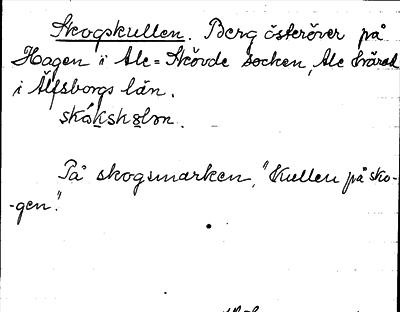 Skogskullen. Berg österöver på
Hagen i Ale=Skövde socken, Ale härad
i Älfsborgs län.
På skogsmarken, "Kullen på sko-
-gen".